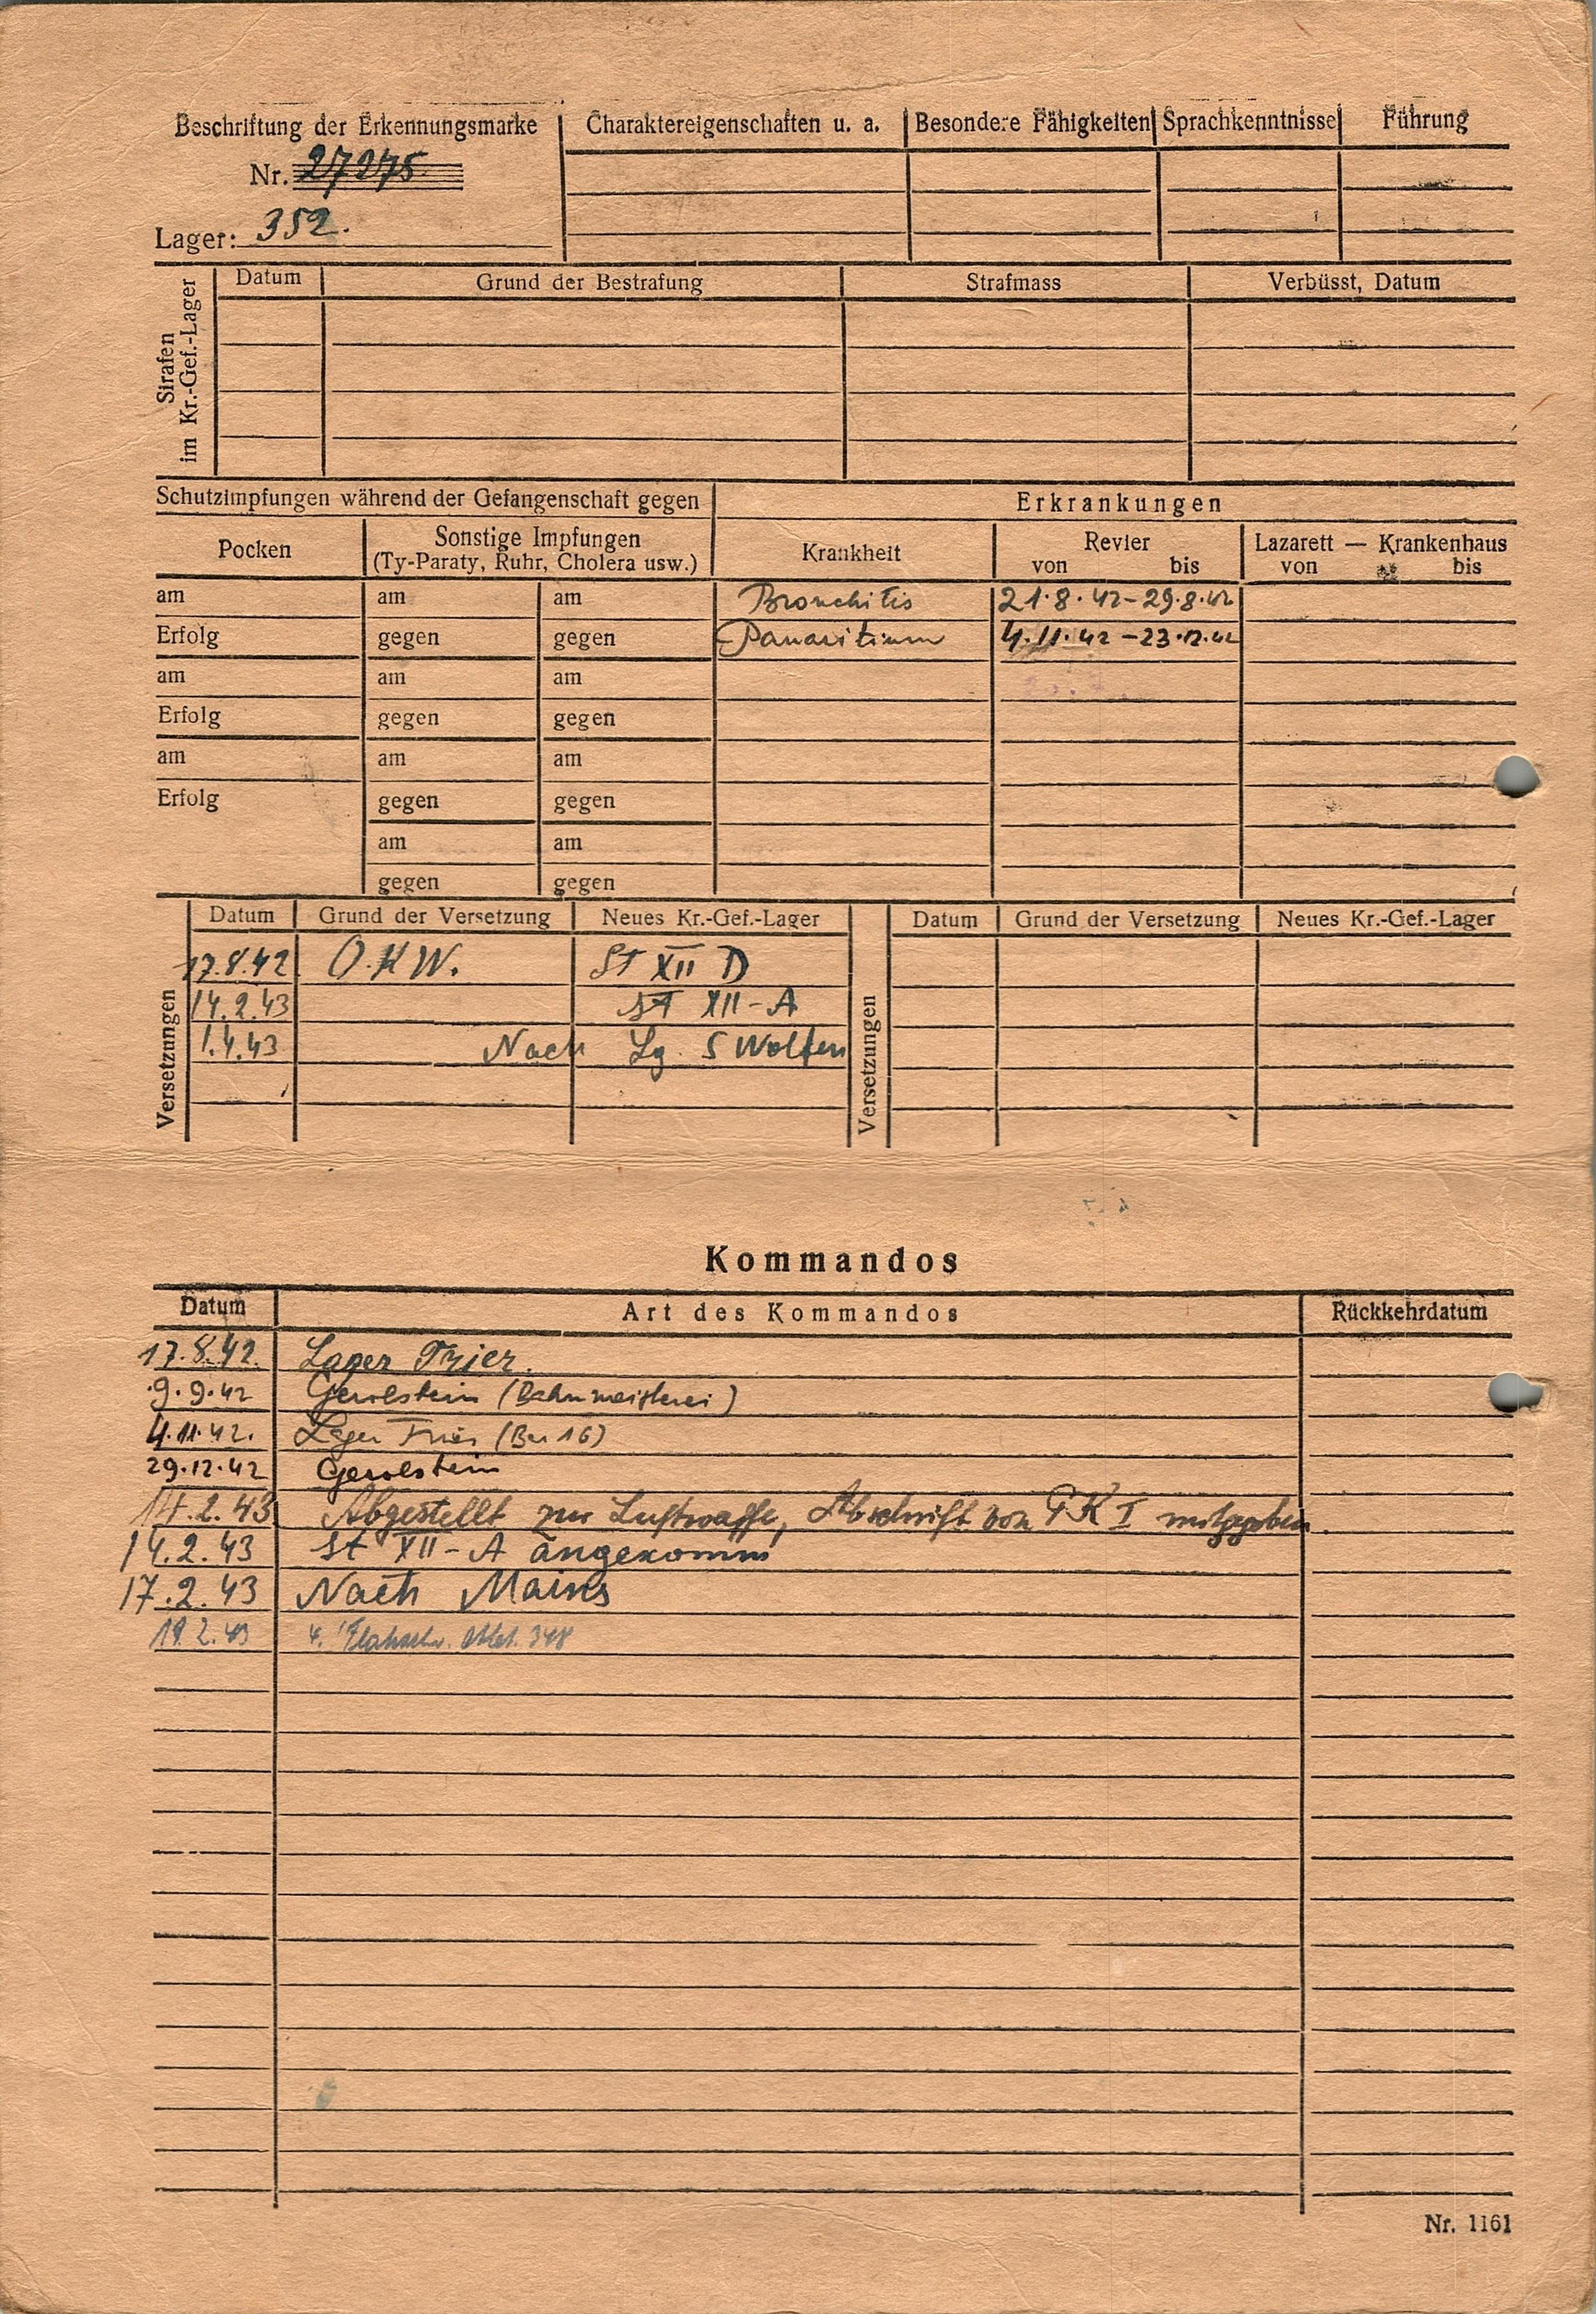 Beschriftung der Erkennungsmarke Charaktereigenschaften u. a. Besondere Fähigkeiten Sprachkenntnisse Führung
Nr. 27275
Lager: 352.
Strafen im Kr.-Gef.-Lager
Datum Grund der Bestrafung Strafmass Verbüsst, Datum
Schutzimpfungen während der Gefangenschaft gegen Erkrankungen
Pocken Sonstige Impfungen Krankheit Revier Lazarett — Krankenhaus
(Ty-Paraty, Ruhr, Cholera usw.) von bis von bis
am am am Bronchitis 21.8.42-29.8.42
Erfolg gegen gegen Panaritium 4.11.42-23.12.42
am am am
Erfolg gegen gegen
am am am
Erfolg gegen gegen
am am
gegen gegen
Versetzungen Datum Grund der Versetzung Neues Kr.-Gef.-Lager Versetzungen Datum Grund der Versetzung Neues Kr.-Gef.-Lager
17.8.42 O.K.W. ST XII D
14.2.43 ST XII-A
1.4.43 Nach Lg. S Wolfen
Kommandos
Datum Art des Kommandos Rückkehrdatum
17.8.42. Lager Trier.
9.9.42 Gerolstein (Bahnmeisterei)
4.11.42. Lager Trier (Bar 16)
29.12.42 Gerolstein
14.2.43 Abgestellt zur Luftwaffe, Abschrift von PK I mitgegeben.
14.2.43 St XII-A angekomm
17.2.43 Nach Mains
19.2.43 4. Abt. 348
Nr. 1161